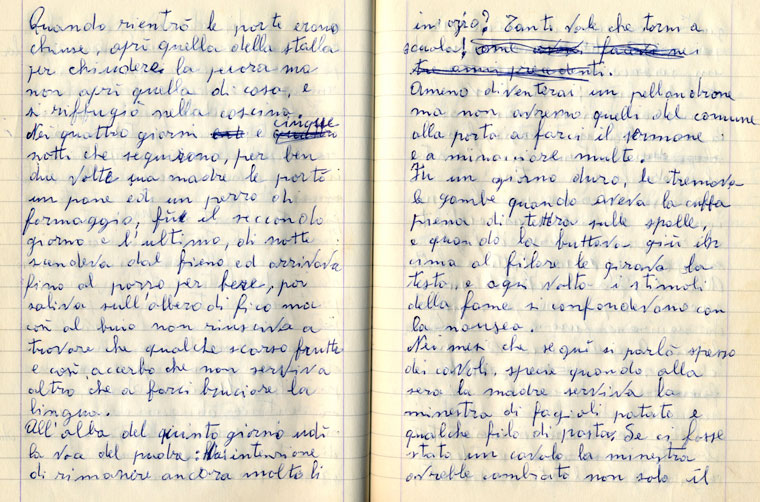 Quando rientrò le porte erano
chiuse, aprì quella della stalla
per chiudere la pecora ma
non aprì quella di casa, e
si rifugiò nella cascina.
Nei quattro giorni e cinque
notti che seguirono, per ben
due volte sua madre le portò
un pane ed un pezzo di
formaggio, fu il secondo
giorno e l'ultimo, di notte
scendeva dal fieno ed arrivava
fino al pozzo per bere, poi
saliva sull'albero di fico ma
così al buio non riusciva a
trovare che qualche scarso frutto
e così acerbo che non serviva
altro che a farci bruciare la
lingua.
All'alba del quinto giorno udì
la voce del padre: Hai intenzione
di rimanere ancora molto lì
in ozio? Tanto vale che torni a
scuola!
Ameno diventerai un pellandrone
ma non avremo quelli del comune
alla porta a farci il sermone
e a minacciare multe.
Fu un giorno duro, le tremava
le gambe quando aveva la cuffa
piena di terra sulle spalle,
e quando la buttava giù in
cima al filare le girava la
testa, e ogni volta i stimoli
della fame si confondevano con
la nausea.
Nei mesi che seguì si parlò spesso
dei cavoli, specie quando alla
sera la madre serviva la
minestra di fagioli patate e
qualche filo di pasta. Se ci fosse
stato un cavolo la minestra
avrebbe cambiato non solo il